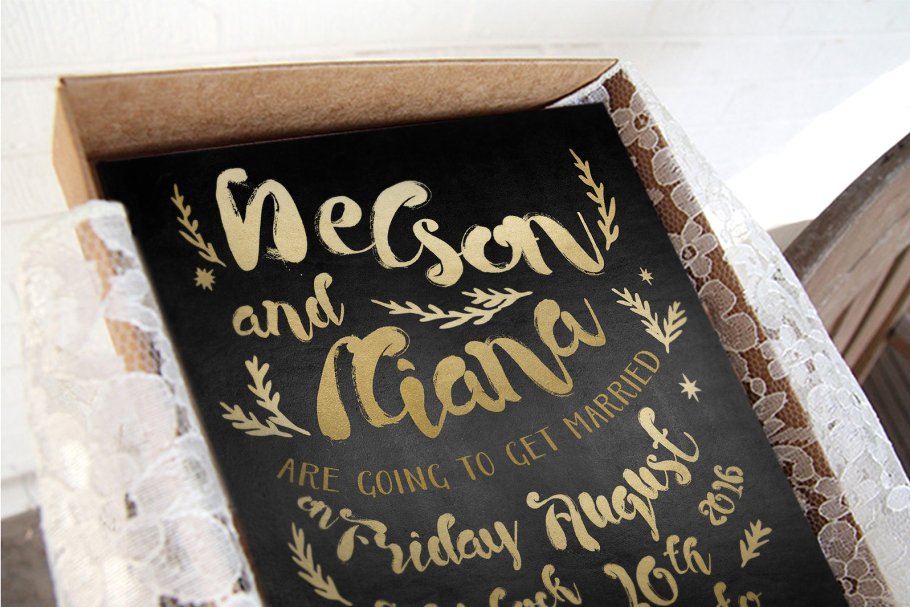 Nelson
and
ARE GOING TO GET MARRIED
on Friday August 2016